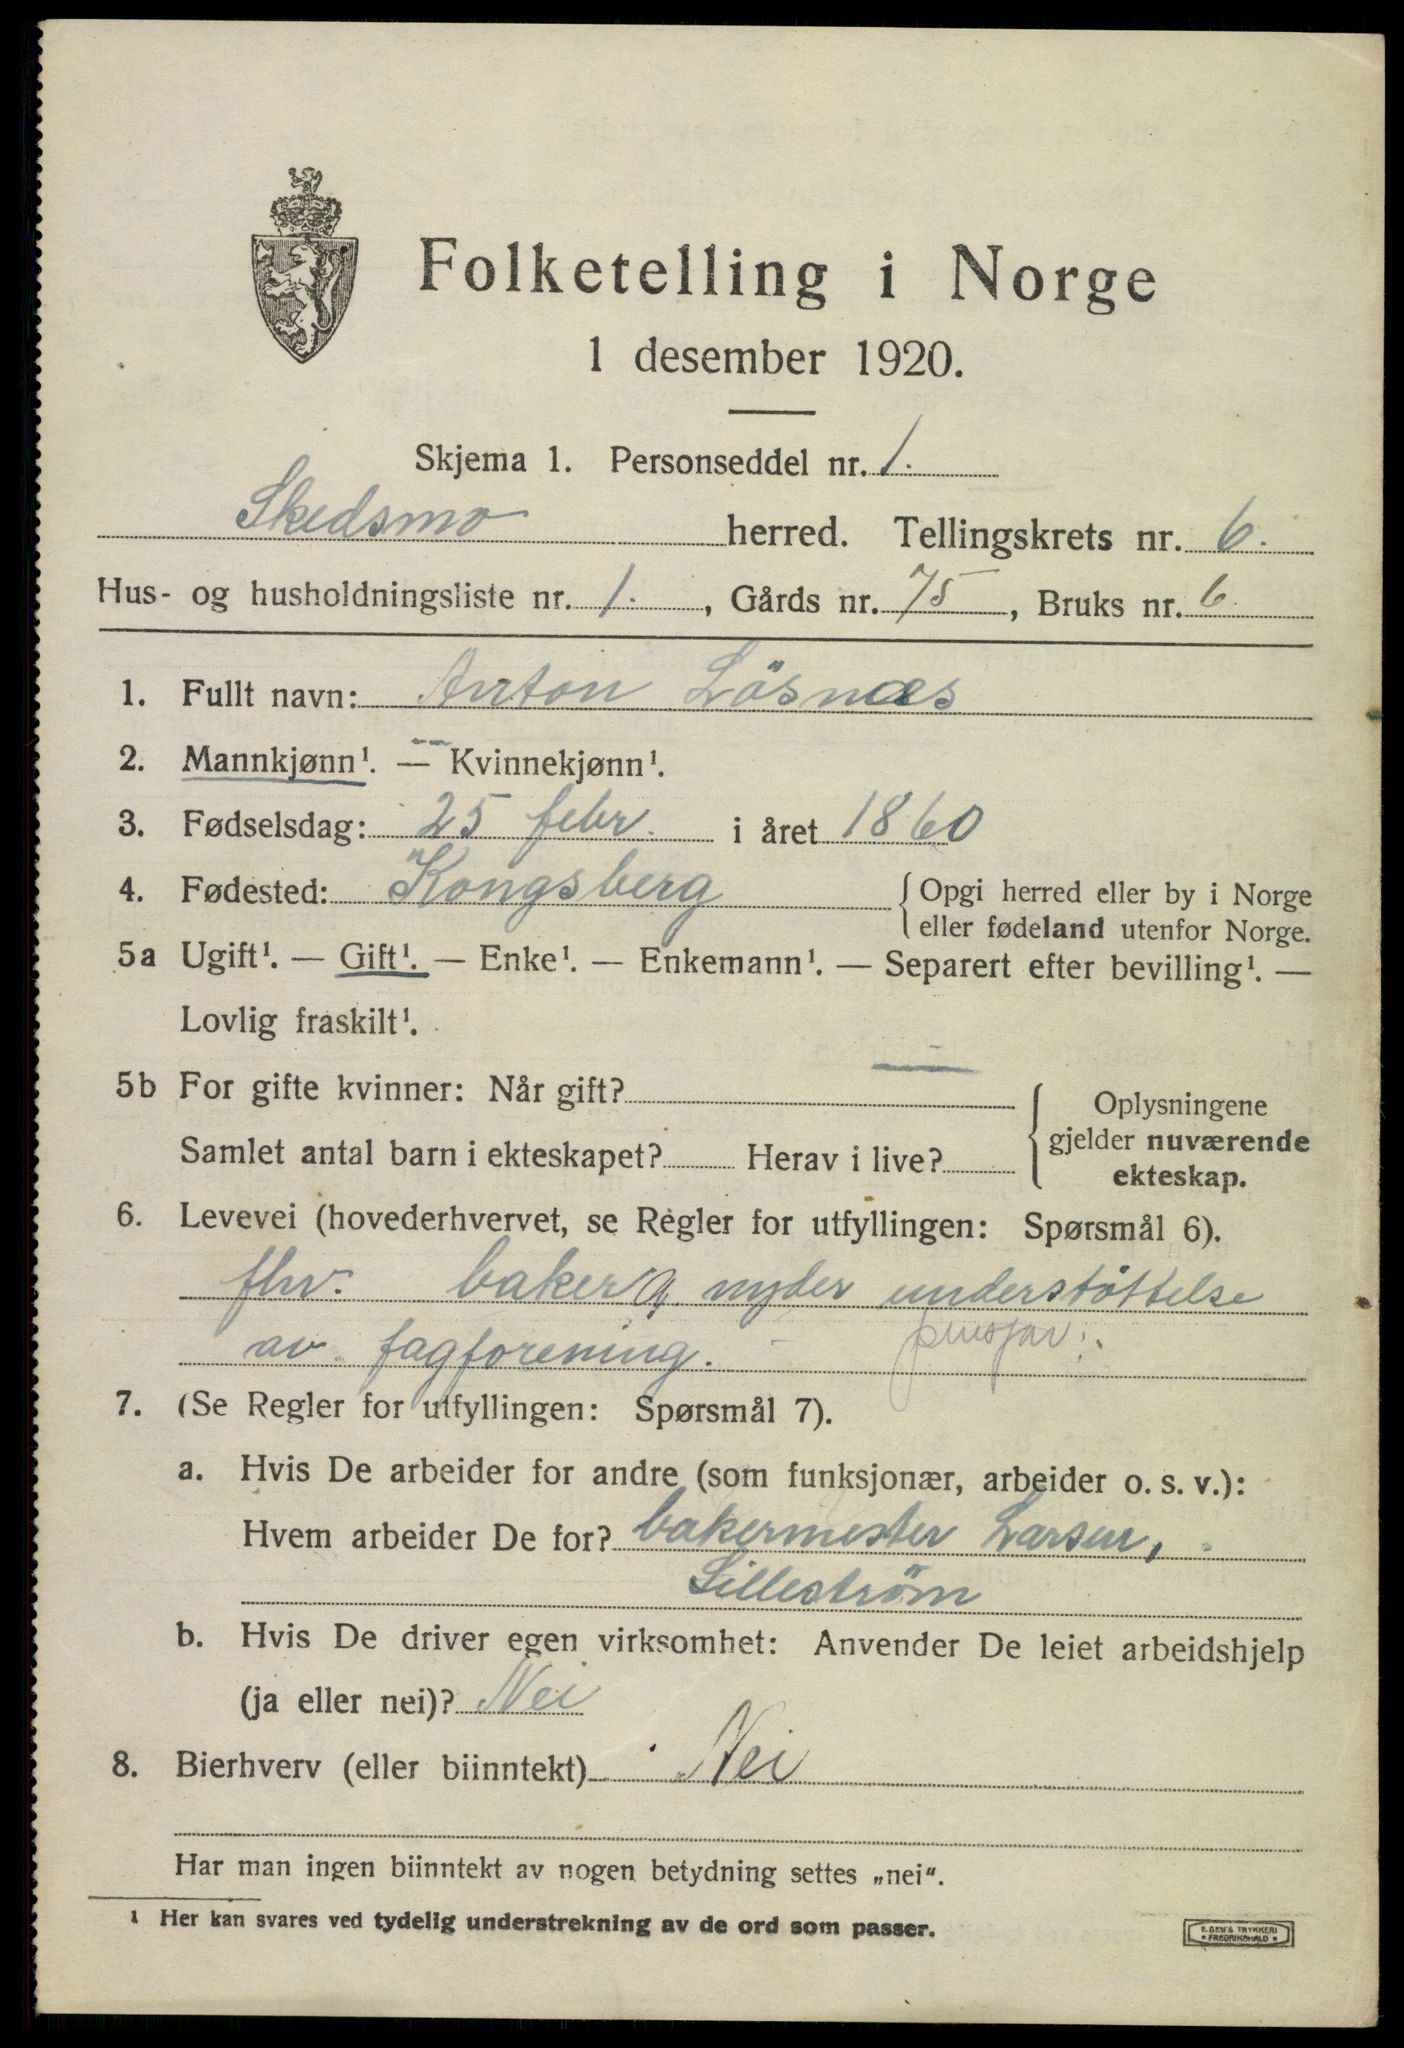 Folketelling i Norge
1 desember 1920.
Skjema 1. Personseddel nr. 1.
Skedsmo herred. Tellingskrets nr. 6.
Hus- og husholdningsliste nr. 1., Gårds nr. 75, Bruks nr. 6
1. Fullt navn: Anton Lösnæs
2. Mannkjønn¹. — Kvinnekjønn¹.
3. Fødselsdag: 25 febr. i året 1860
4. Fødested: Kongsberg { Opgi herred eller by i Norge
eller fødeland utenfor Norge.
5a Ugift¹. — Gift¹. — Enke¹. — Enkemann¹. — Separert efter bevilling¹. —
Lovlig fraskilt¹.
5b For gifte kvinner: Når gift? —
Samlet antal barn i ekteskapet? Herav i live?
{ Oplysningene
gjelder nuværende
ekteskap.
6. Levevei (hovederhvervet, se Regler for utfyllingen: Spørsmål 6).
fhv. baker nyder understöttelse
av fagforening.
7. (Se Regler for utfyllingen: Spørsmål 7).
a. Hvis De arbeider for andre (som funksjonær, arbeider o. s. v.):
Hvem arbeider De for? bakermester Larsen,
Lilleström
b. Hvis De driver egen virksomhet: Anvender De leiet arbeidshjelp
(ja eller nei)? Nei
8. Bierhverv (eller biinntekt) Nei
Har man ingen biinntekt av nogen betydning settes „nei“.
¹ Her kan svares ved tydelig understrekning av de ord som passer.
E. SEM'S TRYKKERI
* FREDRIKSHALD *